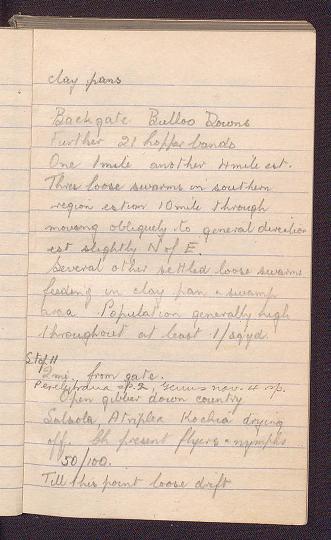 clay pans
Backgate Bulloo Downs
Further 21 hopper bands
One 1mile another 4mile est.
Three loose swarms in southern
region estim 10 mile through
moving obliquely to general direction
est slightly N of E.
Several other settled loose swarms
feeding in clay pan & swamp
area Population generally high
throughout at least 1/sq yd.
Stop 11
2mi. from gate.
sp. 2, Genus nov. 4 sp.
Open gibber down country
Salsola, Atriplex Kochia drying
off. Ch present flyers & nymphs
50/100.
Till this point loose drift